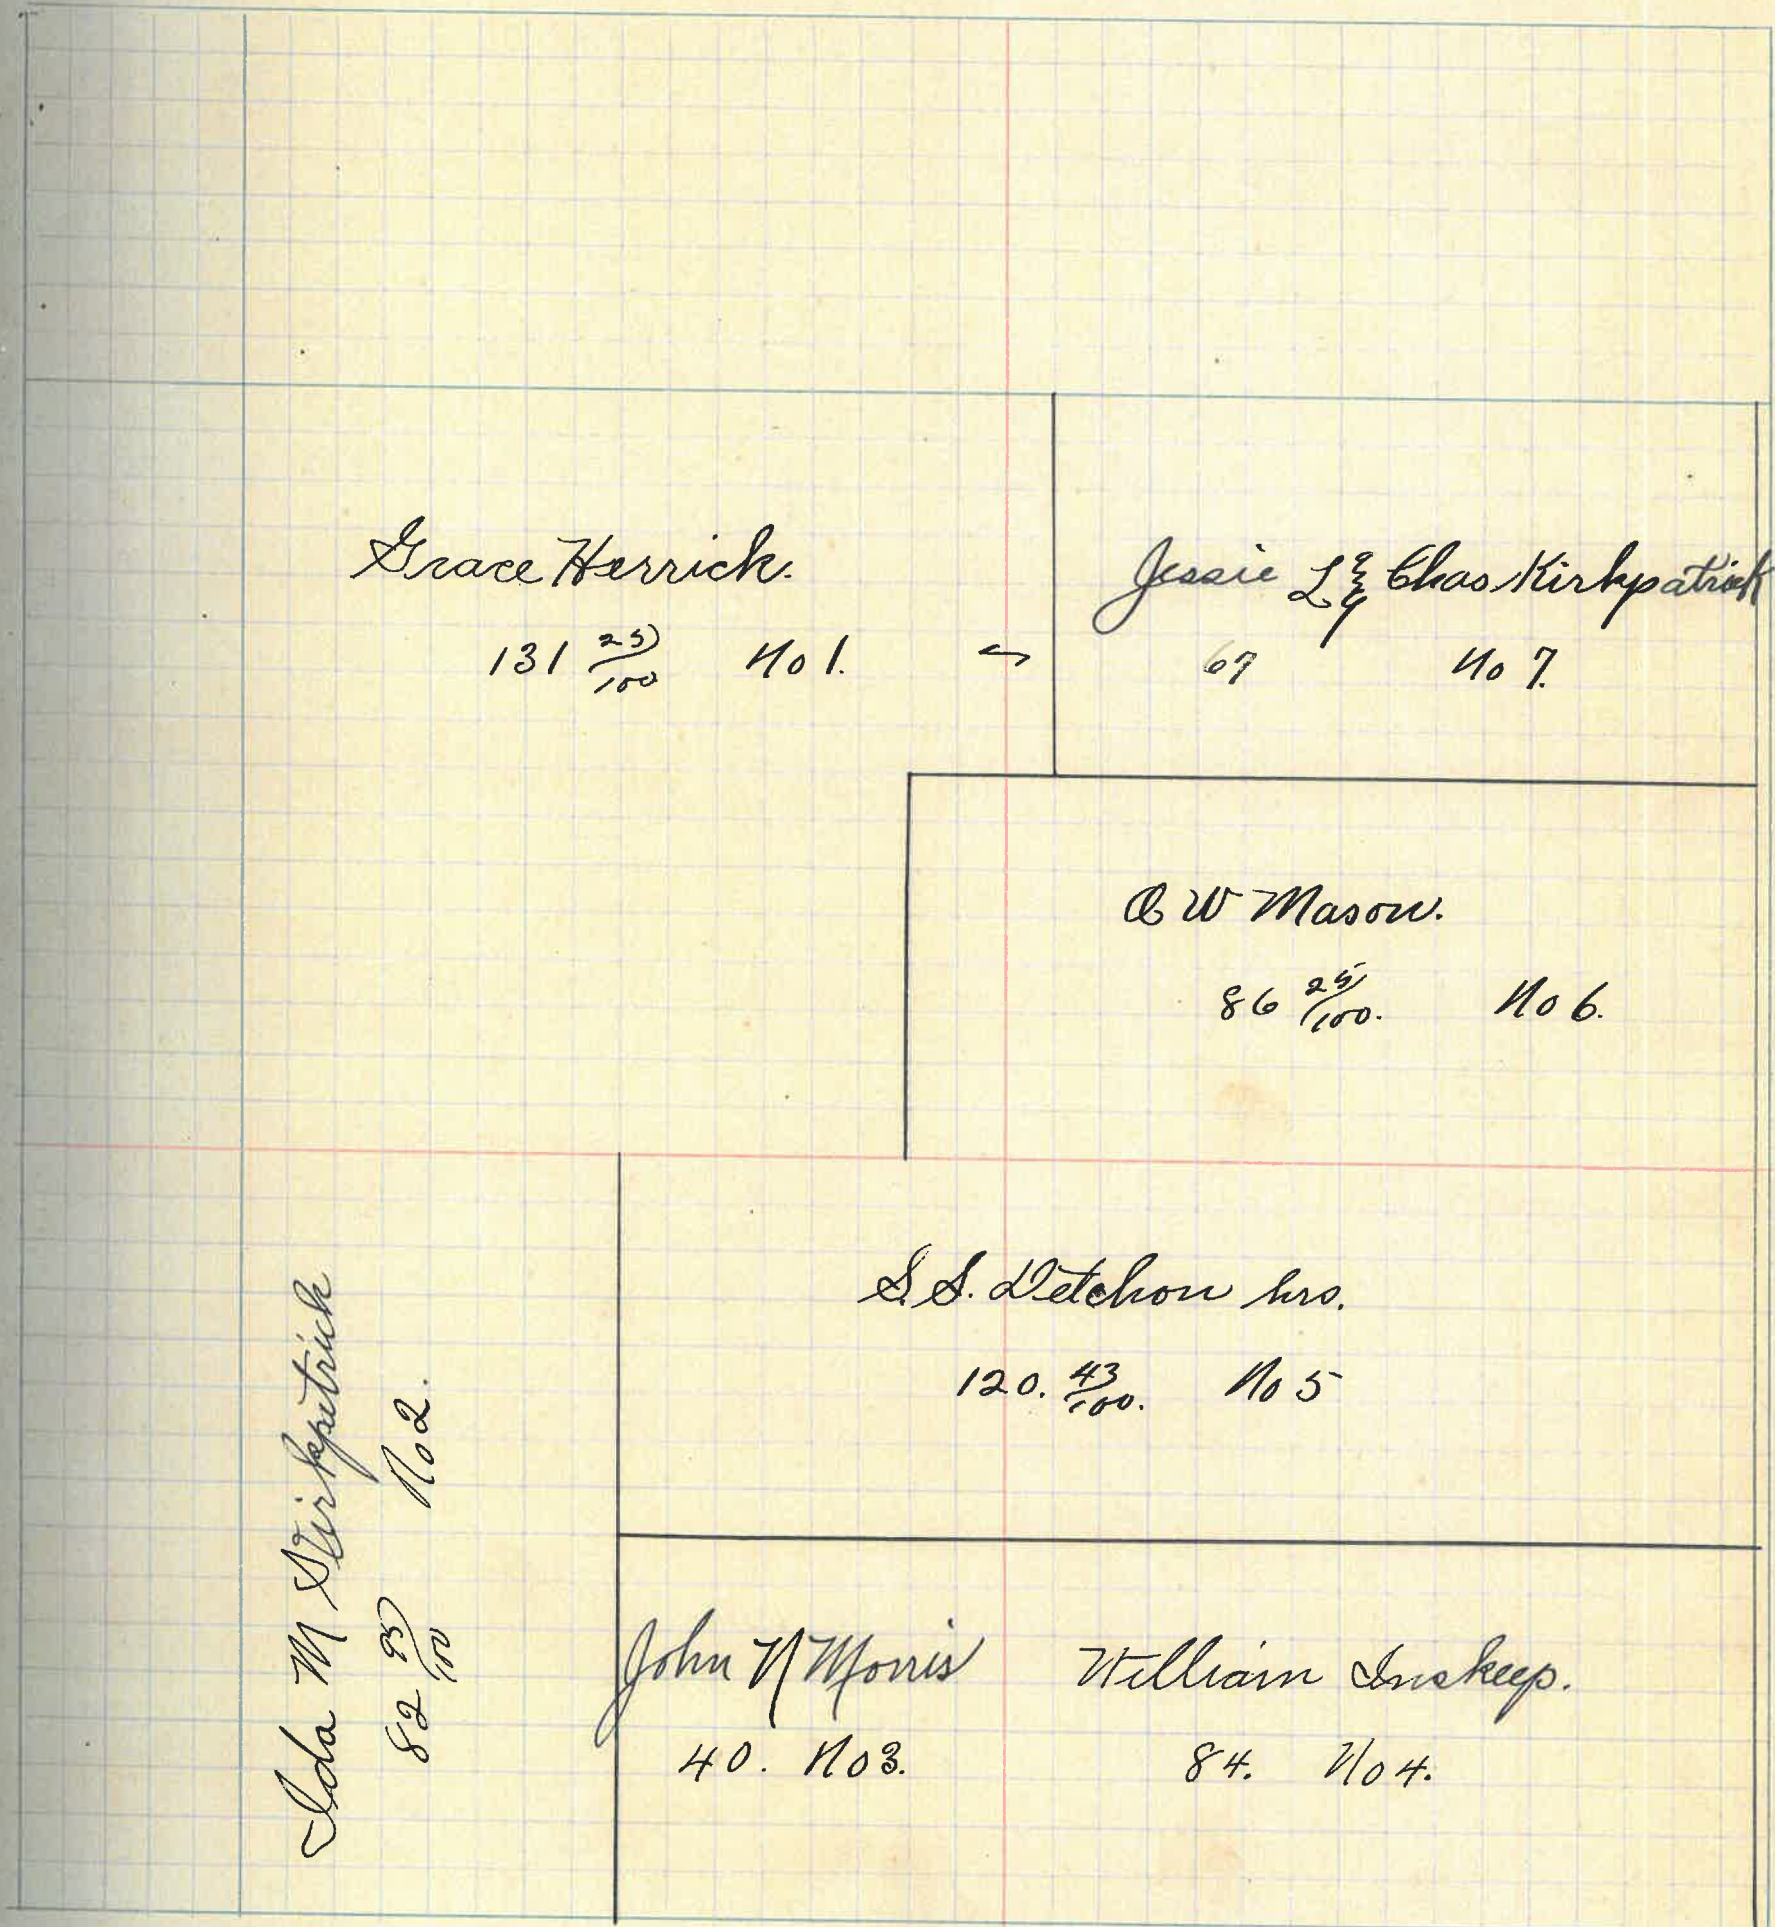 Grace Herrick.
131 25/100 No 1.
Jessie L & Chas Kirkpatrick
67 No 7.
W Mason.
86 25/100. No 6.
S. S. Detchon hrs.
120. 43/100. No 5
Ida M Kirkpetrick
82 95/100 No 2.
John N Morris
40. No 3.
William Inskeep.
84. No 4.